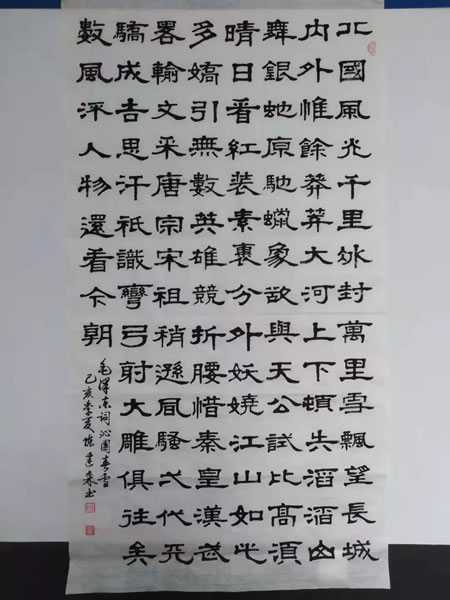 北國風光千里冰封萬里雪飄望長城
内外惟餘莽莽大河上下頓失滔滔山
舞銀蛇原馳蠟象欲與天公試比高須
晴日看紅裝素裹分外妖嬈江山如此
多嬌引無數英雄競折腰惜秦皇漢武
畧輸文采唐宗宋祖稍遜風騷弌代天
驕成吉思汗祇識彎弓射大雕俱往矣
數風流人物還看今朝
毛澤東詞沁園春雪
己亥季夏陳建书